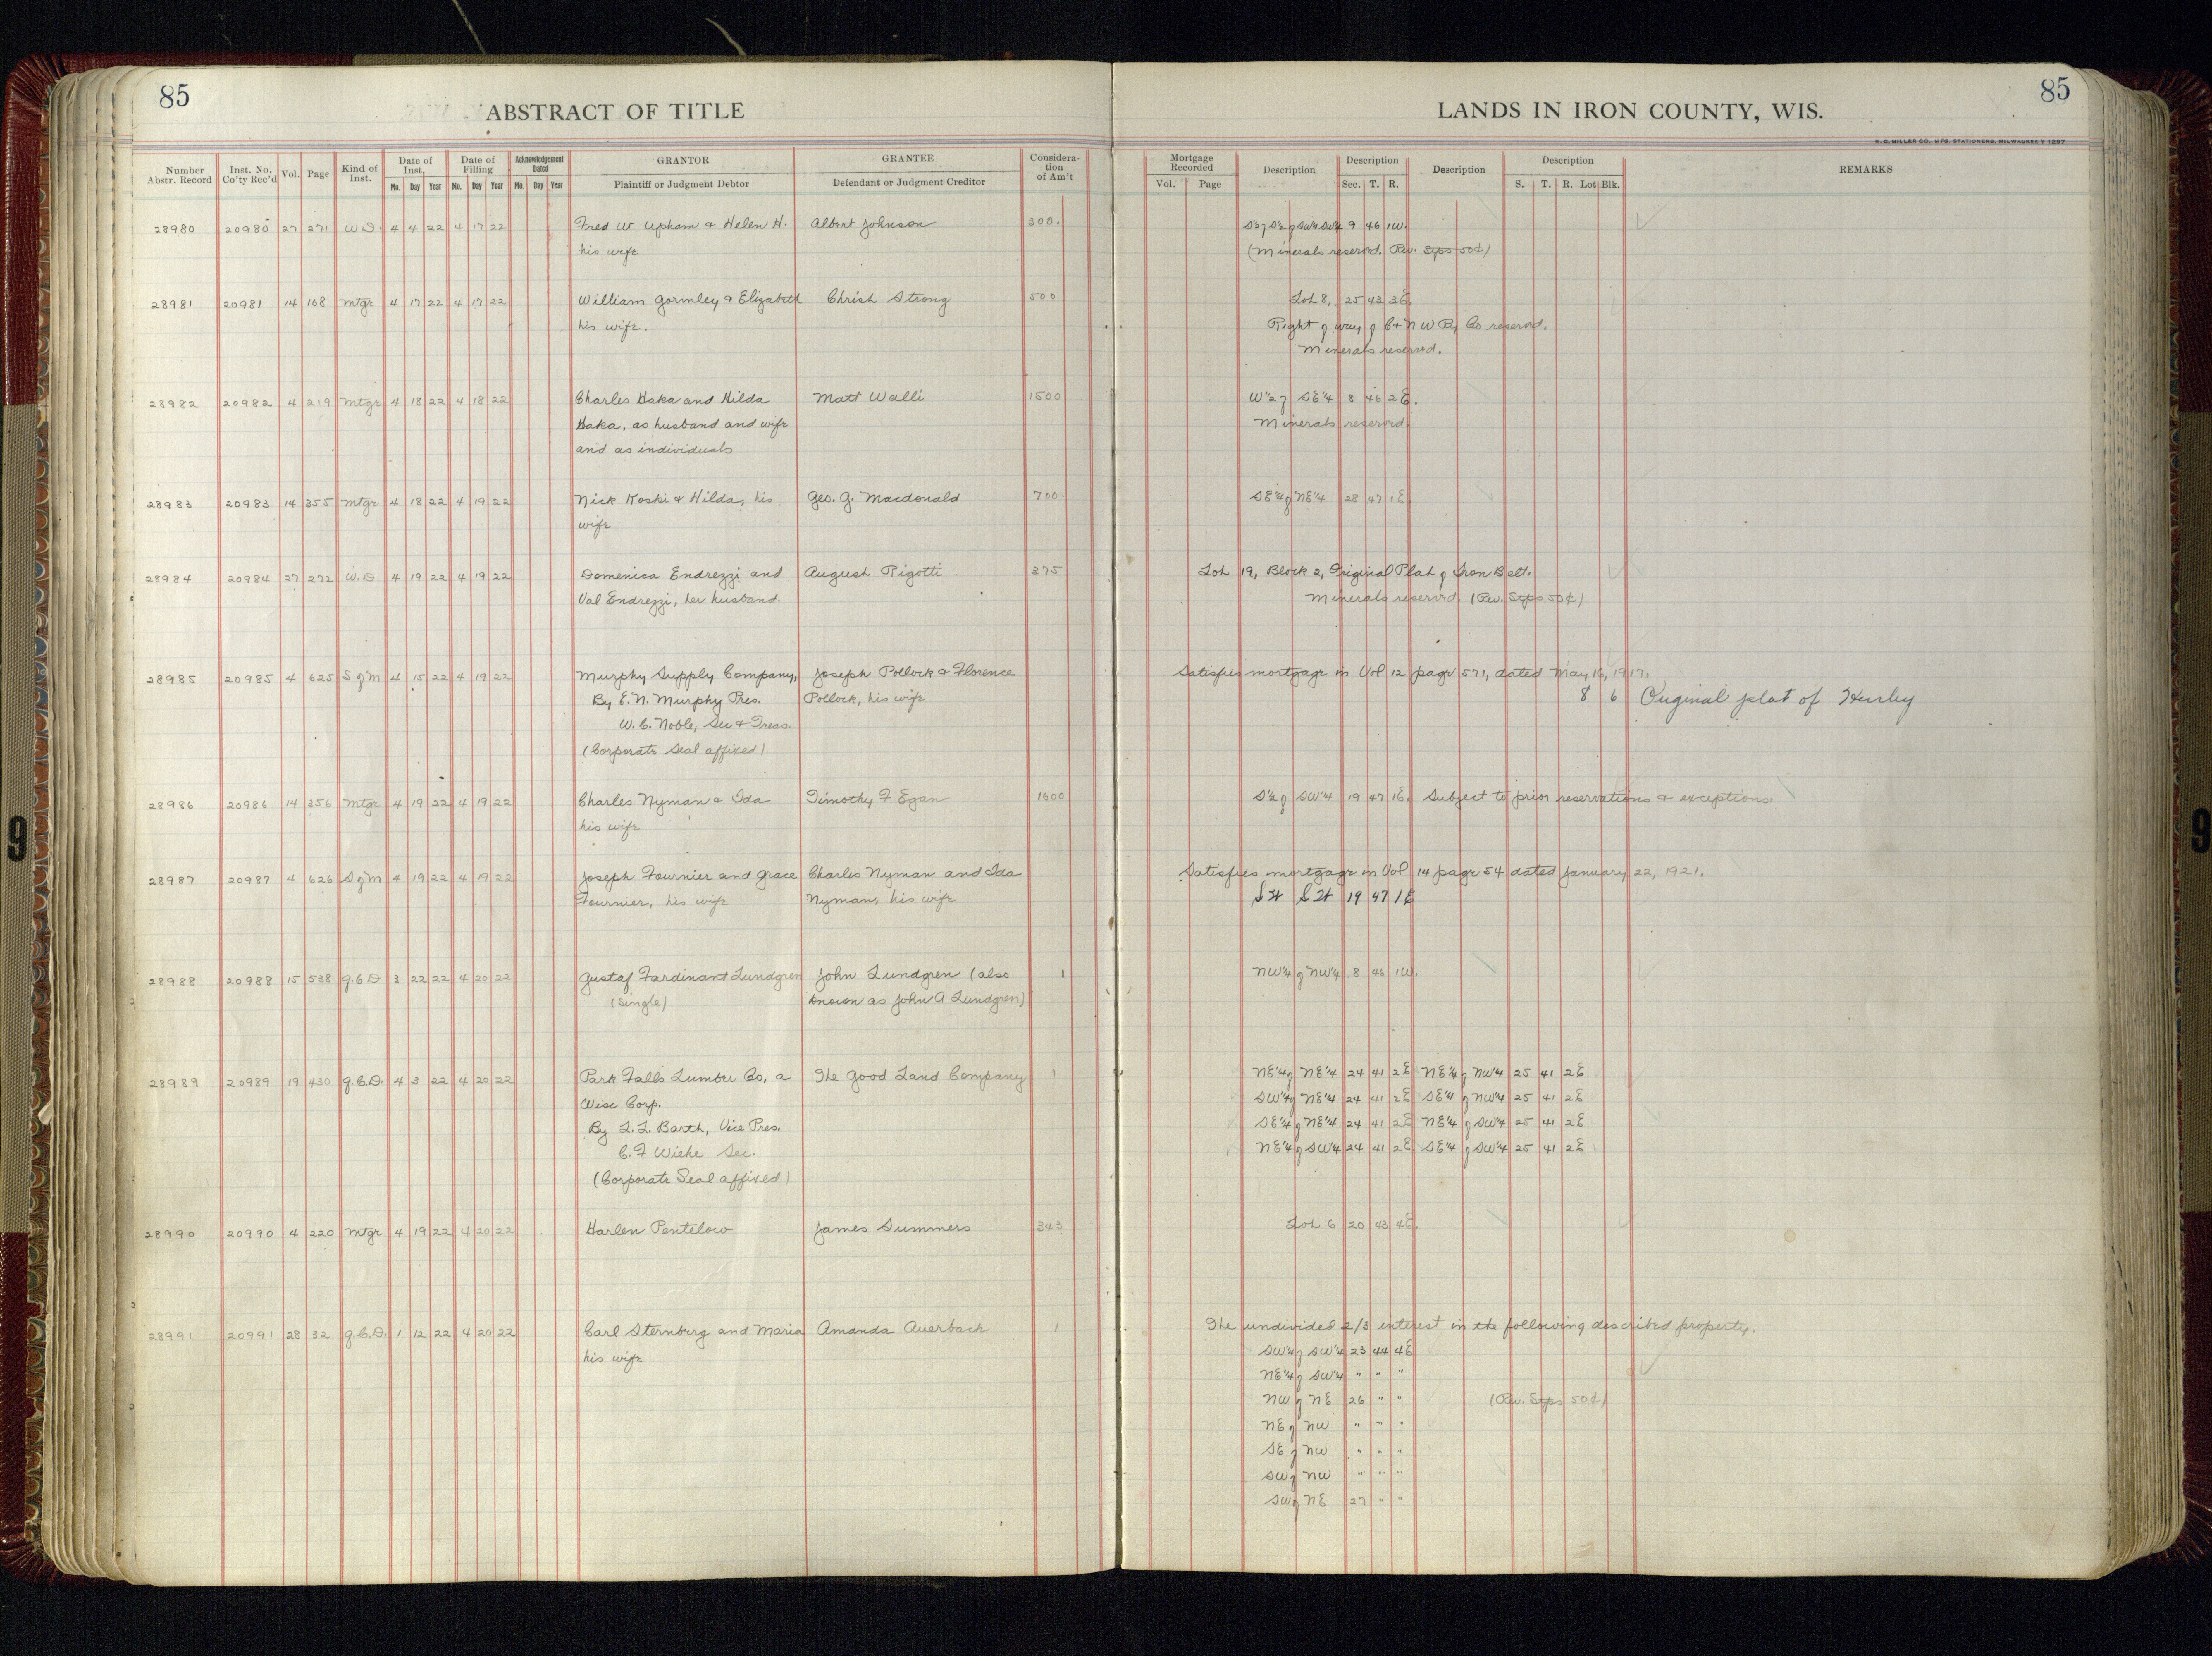 85
ABSTRACT OF TITLE
LANDS IN IRON COUNTY, WIS.
85
H. C. MILLER CO., MFG. STATIONERS, MILWAUKEE
Number Abstr. Record | Inst. No. Co'ty Rec'd | Vol. | Page | Kind of Inst. | Date of Inst. Mo. Day Year | Date of Filling Mo. Day Year | Acknowledgement Dated Mo. Day Year | GRANTOR Plaintiff or Judgment Debtor | GRANTEE Defendant or Judgment Creditor | Consideration of Am't | Mortgage Recorded Vol. Page | Description | Description Sec. T. R. | Description | Description S. T. R. Lot Blk. | REMARKS
28980 20980 27 271 W D. 4 4 22 4 17 22 Fred W Upham & Helen H. Albert Johnson 300. S½ of S½ of SW¼ SW¼ 9 46 1W.
his wife (Minerals reserved. Rev. Stps 50¢)
28981 20981 14 168 Mtge 4 17 22 4 17 22 William Gormley & Elizabeth Christ Strong 500 Lot 8, 25 43 3E.
his wife. Right of way of C & N W Ry Co reserved.
Minerals reserved.
28982 20982 4 219 Mtge 4 18 22 4 18 22 Charles Haka and Hilda Matt Walli 1500 W½ of SE¼ 8 46 2E.
Haka, as husband and wife Minerals reserved
and as individuals
28983 20983 14 355 Mtge 4 18 22 4 19 22 Nick Koski & Hilda, his Geo. G. Macdonald 700. SE¼ of NE¼ 28 47 1E
wife
28984 20984 27 272 W. D 4 19 22 4 19 22 Domenica Endrezzi and August Rigotti 375 Lot 19, Block 2, Original Plat of Iron Belt.
Val Endrezzi, her husband. Minerals reserved. (Rev. Stps 50¢)
28985 20985 4 625 S of M 4 15 22 4 19 22 Murphy Supply Company, Joseph Pollock & Florence Satisfies mortgage in Vol 12 page 571, dated May 16, 1917.
By E. N. Murphy Pres. Pollock, his wife 8 6 Original plat of Hurley
W. C. Noble, Sec & Treas.
(Corporate Seal affixed)
28986 20986 14 356 Mtge 4 19 22 4 19 22 Charles Nyman & Ida Timothy F Egan 1600 S½ of SW¼ 19 47 1E. Subject to prior reservations & exceptions.
his wife
28987 20987 4 626 S of M 4 19 22 4 19 22 Joseph Fournier and Grace Charles Nyman and Ida Satisfies mortgage in Vol 14 page 54 dated January 22, 1921.
Fournier, his wife Nyman, his wife 19 47 1E
28988 20988 15 538 Q. C D 3 22 22 4 20 22 Gustaf Fardinant Lundgren John Lundgren (also 1 NW¼ of NW¼ 8 46 1W.
(Single) known as John A Lundgren)
28989 20989 19 430 Q. C. D. 4 3 22 4 20 22 Park Falls Lumber Co, a The Good Land Company 1 NE¼ of NE¼ 24 41 2E NE¼ of NW¼ 25 41 2E
Wisc Corp. SW¼ of NE¼ 24 41 2E SE¼ of NW¼ 25 41 2E
By L. L. Barth, Vice Pres. SE¼ of NE¼ 24 41 2E NE¼ of SW¼ 25 41 2E
C. F Wiehe Sec. NE¼ of SW¼ 24 41 2E SE¼ of SW¼ 25 41 2E
(Corporate Seal affixed)
28990 20990 4 220 Mtge 4 19 22 4 20 22 Harlen Pentelow James Summers 343 Lot 6 20 43 4E.
28991 20991 28 32 Q. C. D. 1 12 22 4 20 22 Carl Sternberg and Maria Amanda Auerbach 1 The undivided 2/3 interest in the following described property.
his wife SW¼ of SW¼ 23 44 4E
NE¼ of SW¼ " " "
NW of NE 26 " " (Rev. Stps 50¢)
NE of NW " " "
SE of NW " " "
SW of NW " " "
SW of NE 27 " "
9
9